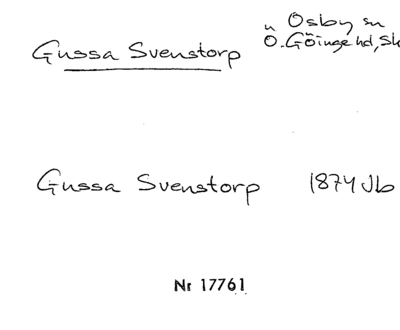 Gussa Svenstorp
n Osby sn
Ö. Göinge hd, Sk
Gussa Svenstorp 1874 Jb
Nr 17761